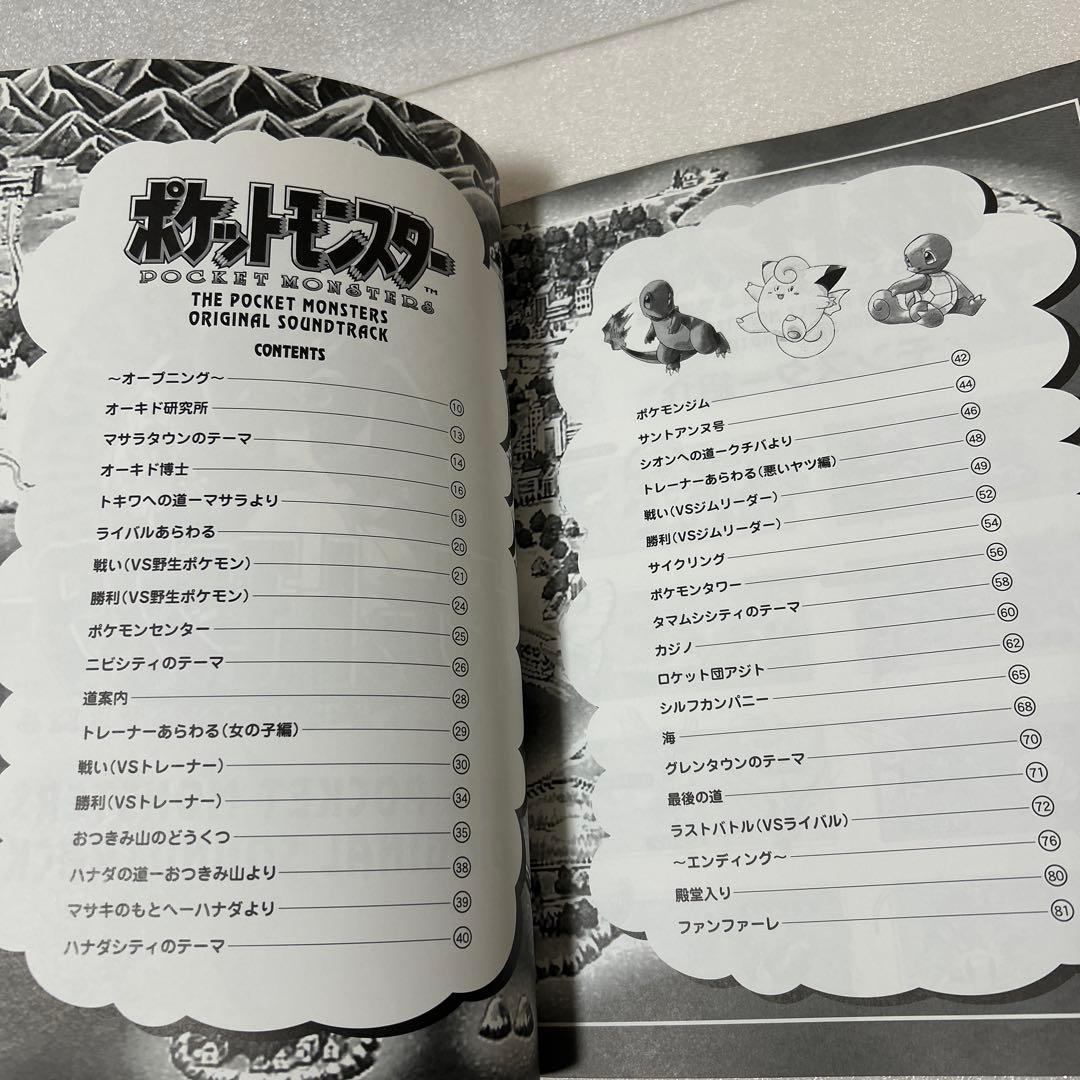 ポケットモンスター
POCKET MONSTERS™
THE POCKET MONSTERS
ORIGINAL SOUNDTRACK
CONTENTS
～オープニング～ 10
オーキド研究所 13
マサラタウンのテーマ 14
オーキド博士 16
トキワへの道ーマサラより 18
ライバルあらわる 20
戦い(VS野生ポケモン) 21
勝利(VS野生ポケモン) 24
ポケモンセンター 25
ニビシティのテーマ 26
道案内 28
トレーナーあらわる(女の子編) 29
戦い(VSトレーナー) 30
勝利(VSトレーナー) 34
おつきみ山のどうくつ 35
ハナダの道ーおつきみ山より 38
マサキのもとへーハナダより 39
ハナダシティのテーマ 40
ポケモンジム 42
サントアンヌ号 44
シオンへの道ークチバより 46
トレーナーあらわる(悪いヤツ編) 48
戦い(VSジムリーダー) 49
勝利(VSジムリーダー) 52
サイクリング 54
ポケモンタワー 56
タマムシシティのテーマ 58
カジノ 60
ロケット団アジト 62
シルフカンパニー 65
海 68
グレンタウンのテーマ 70
最後の道 71
ラストバトル(VSライバル) 72
～エンディング～ 76
殿堂入り 80
ファンファーレ 81